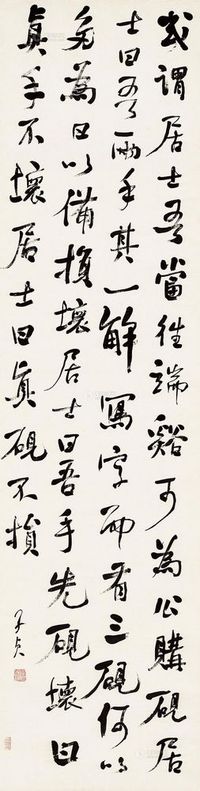 或謂居士吾當往端谿可為公購硯居
士曰吾兩手其一解寫字而有三硯何以
多為曰以備損壞居士曰吾手先硯壞曰
真手不壞居士曰真硯不損
子貞